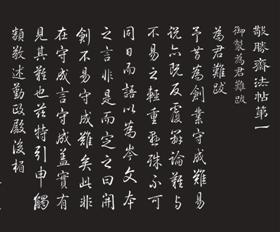 敬勝齋法帖第一
御製為君難跋
為君難跋
予昔為創業守成難易
說六既反覆辯論難与
不易之輕重懸殊不可
同日而語以為岑文本
之言非是而定之曰開
創不易守成難矣此非
在守成言守成蓋實有
見其難也茲特引申觸
類 述勤政殿後楣